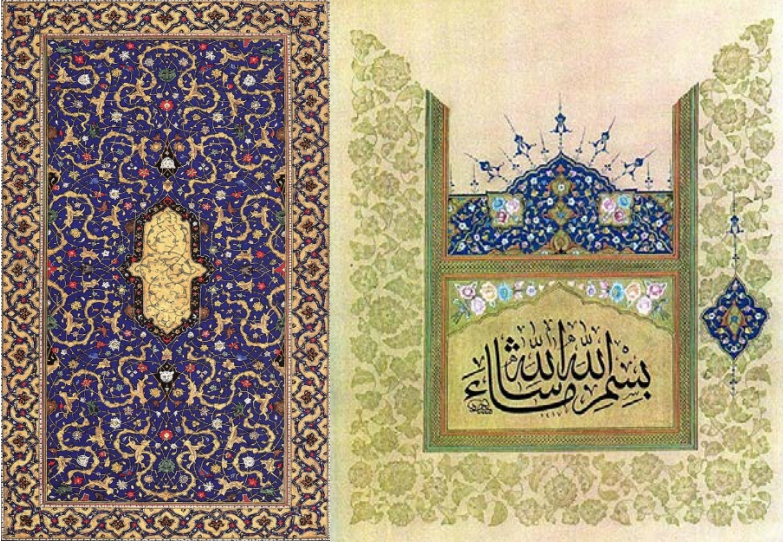 بِسْمِ اللّٰهِ مَاشَاءَ اللّٰه